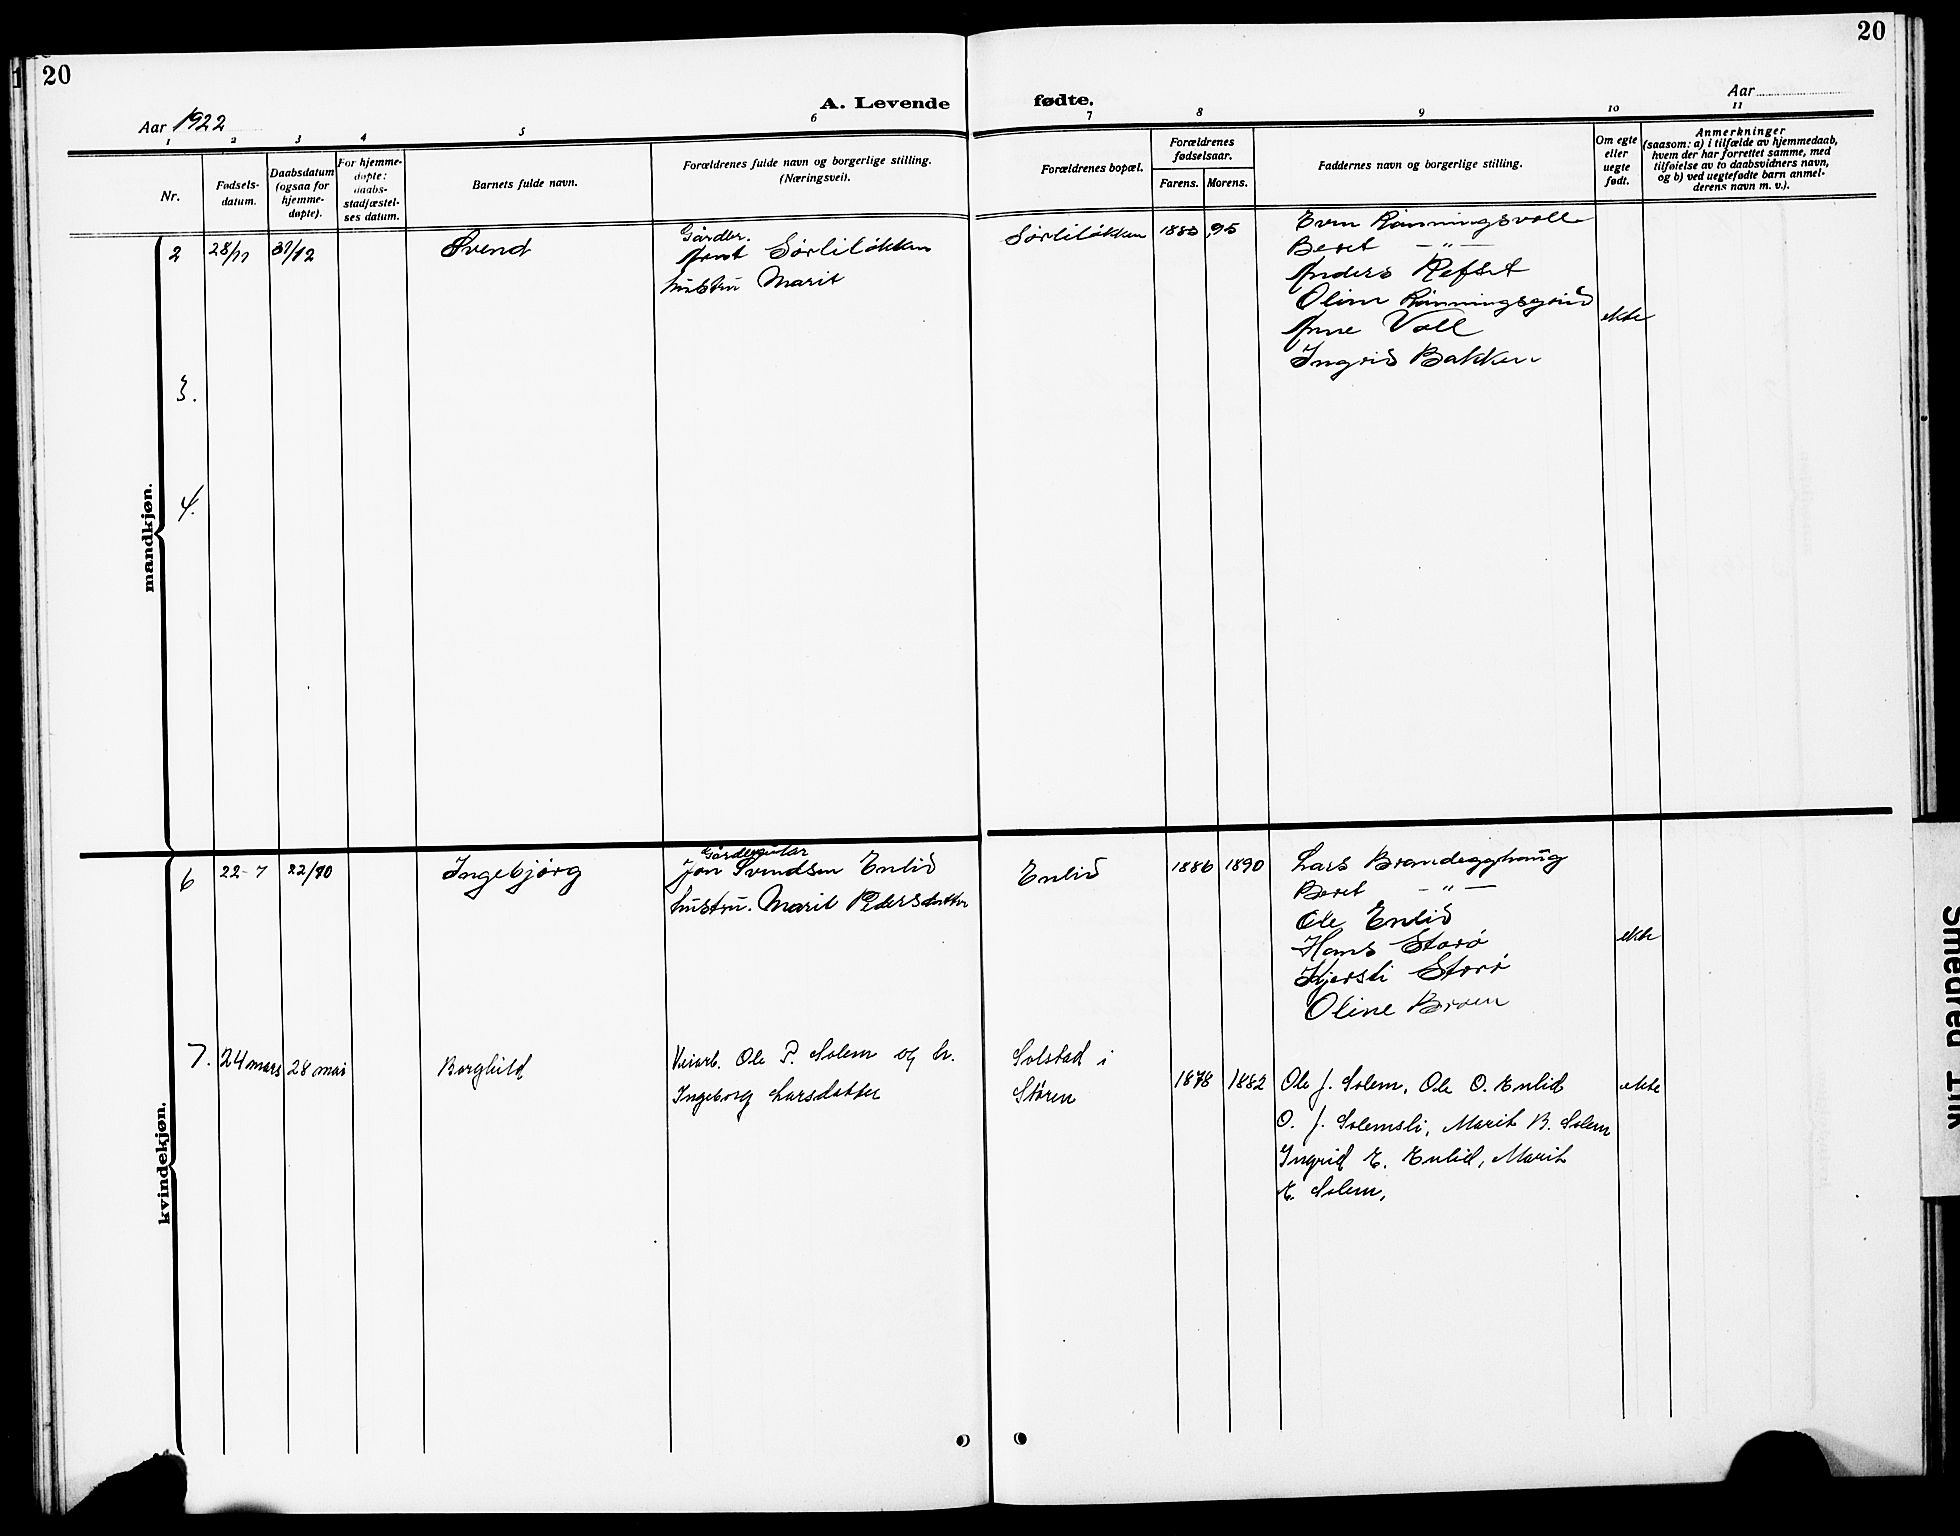 20
20
A. Levende fødte.
Aar 1922
Aar
1 2 3 4 5 6 7 8 9 10 11
Nr.
Fødsels-
datum.
Daabsdatum
(ogsaa for
hjemme-
døpte).
For hjemme-
døpte:
daabs-
stadfæstel-
ses datum.
Barnets fulde navn.
Forældrenes fulde navn og borgerlige stilling.
(Næringsvei).
Forældrenes bopæl.
Forældrenes
fødselsaar.
Farens. Morens.
Faddernes navn og borgerlige stilling.
Om egte
eller
uegte
født.
Anmerkninger
(saasom: a) i tilfælde av hjemmedaab,
hvem der har forrettet samme, med
tilføielse av to daabsvidners navn,
og b) ved uegtefødte barn anmel-
derens navn m. v.).
mandkjøn.
2 28/11 31/12 Svend
Gårdbr.
Arnt Sørliløkken
hustru Marit
Sørliløkken 1883 95
Even Rønningsvoll
Beret —"—
Anders Refset
Oline Rønningsgrind
Anne Voll
Ingrid Bakken
ekte
3.
4.
kvindekjøn.
6 22-7 22/10 Ingebjørg
Jon Svendsen Enlid
hustru. Marit Pedersdatter
Enlid 1886 1890
Lars Brandegghaug
Beret —"—
Ole Enlid
Hans Storø
Kjersti Storø
Oline Broen
ekte
7. 24 mars 28 mai Borghild
Veiarb. Ole P. Solem og h.
Ingeborg Larsdatter
Solstad i
Støren
1878 1882
Ole J. Solem, Ole O. Enlid
O. J. Solemsli, Marit B. Solem
Ingrid E. Enlid, Marit
E. Solem,
ekte